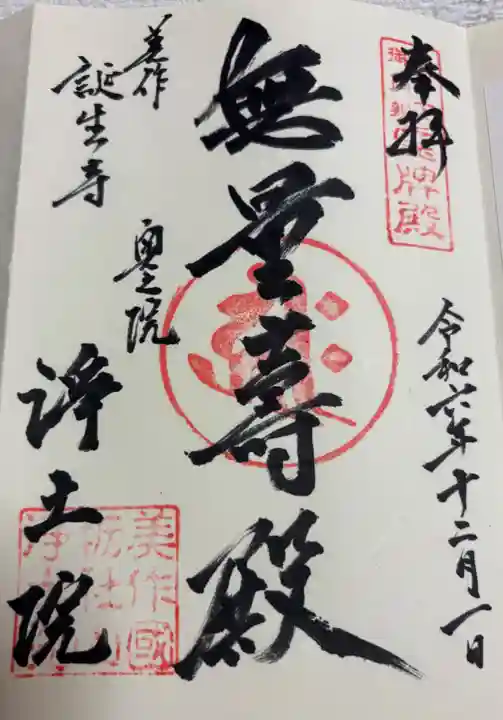 奉拝
牌殿
令和六年十二月一日
無量壽殿
美作
誕生寺
奥之院
浄土院
美作國
栃社山
浄土院